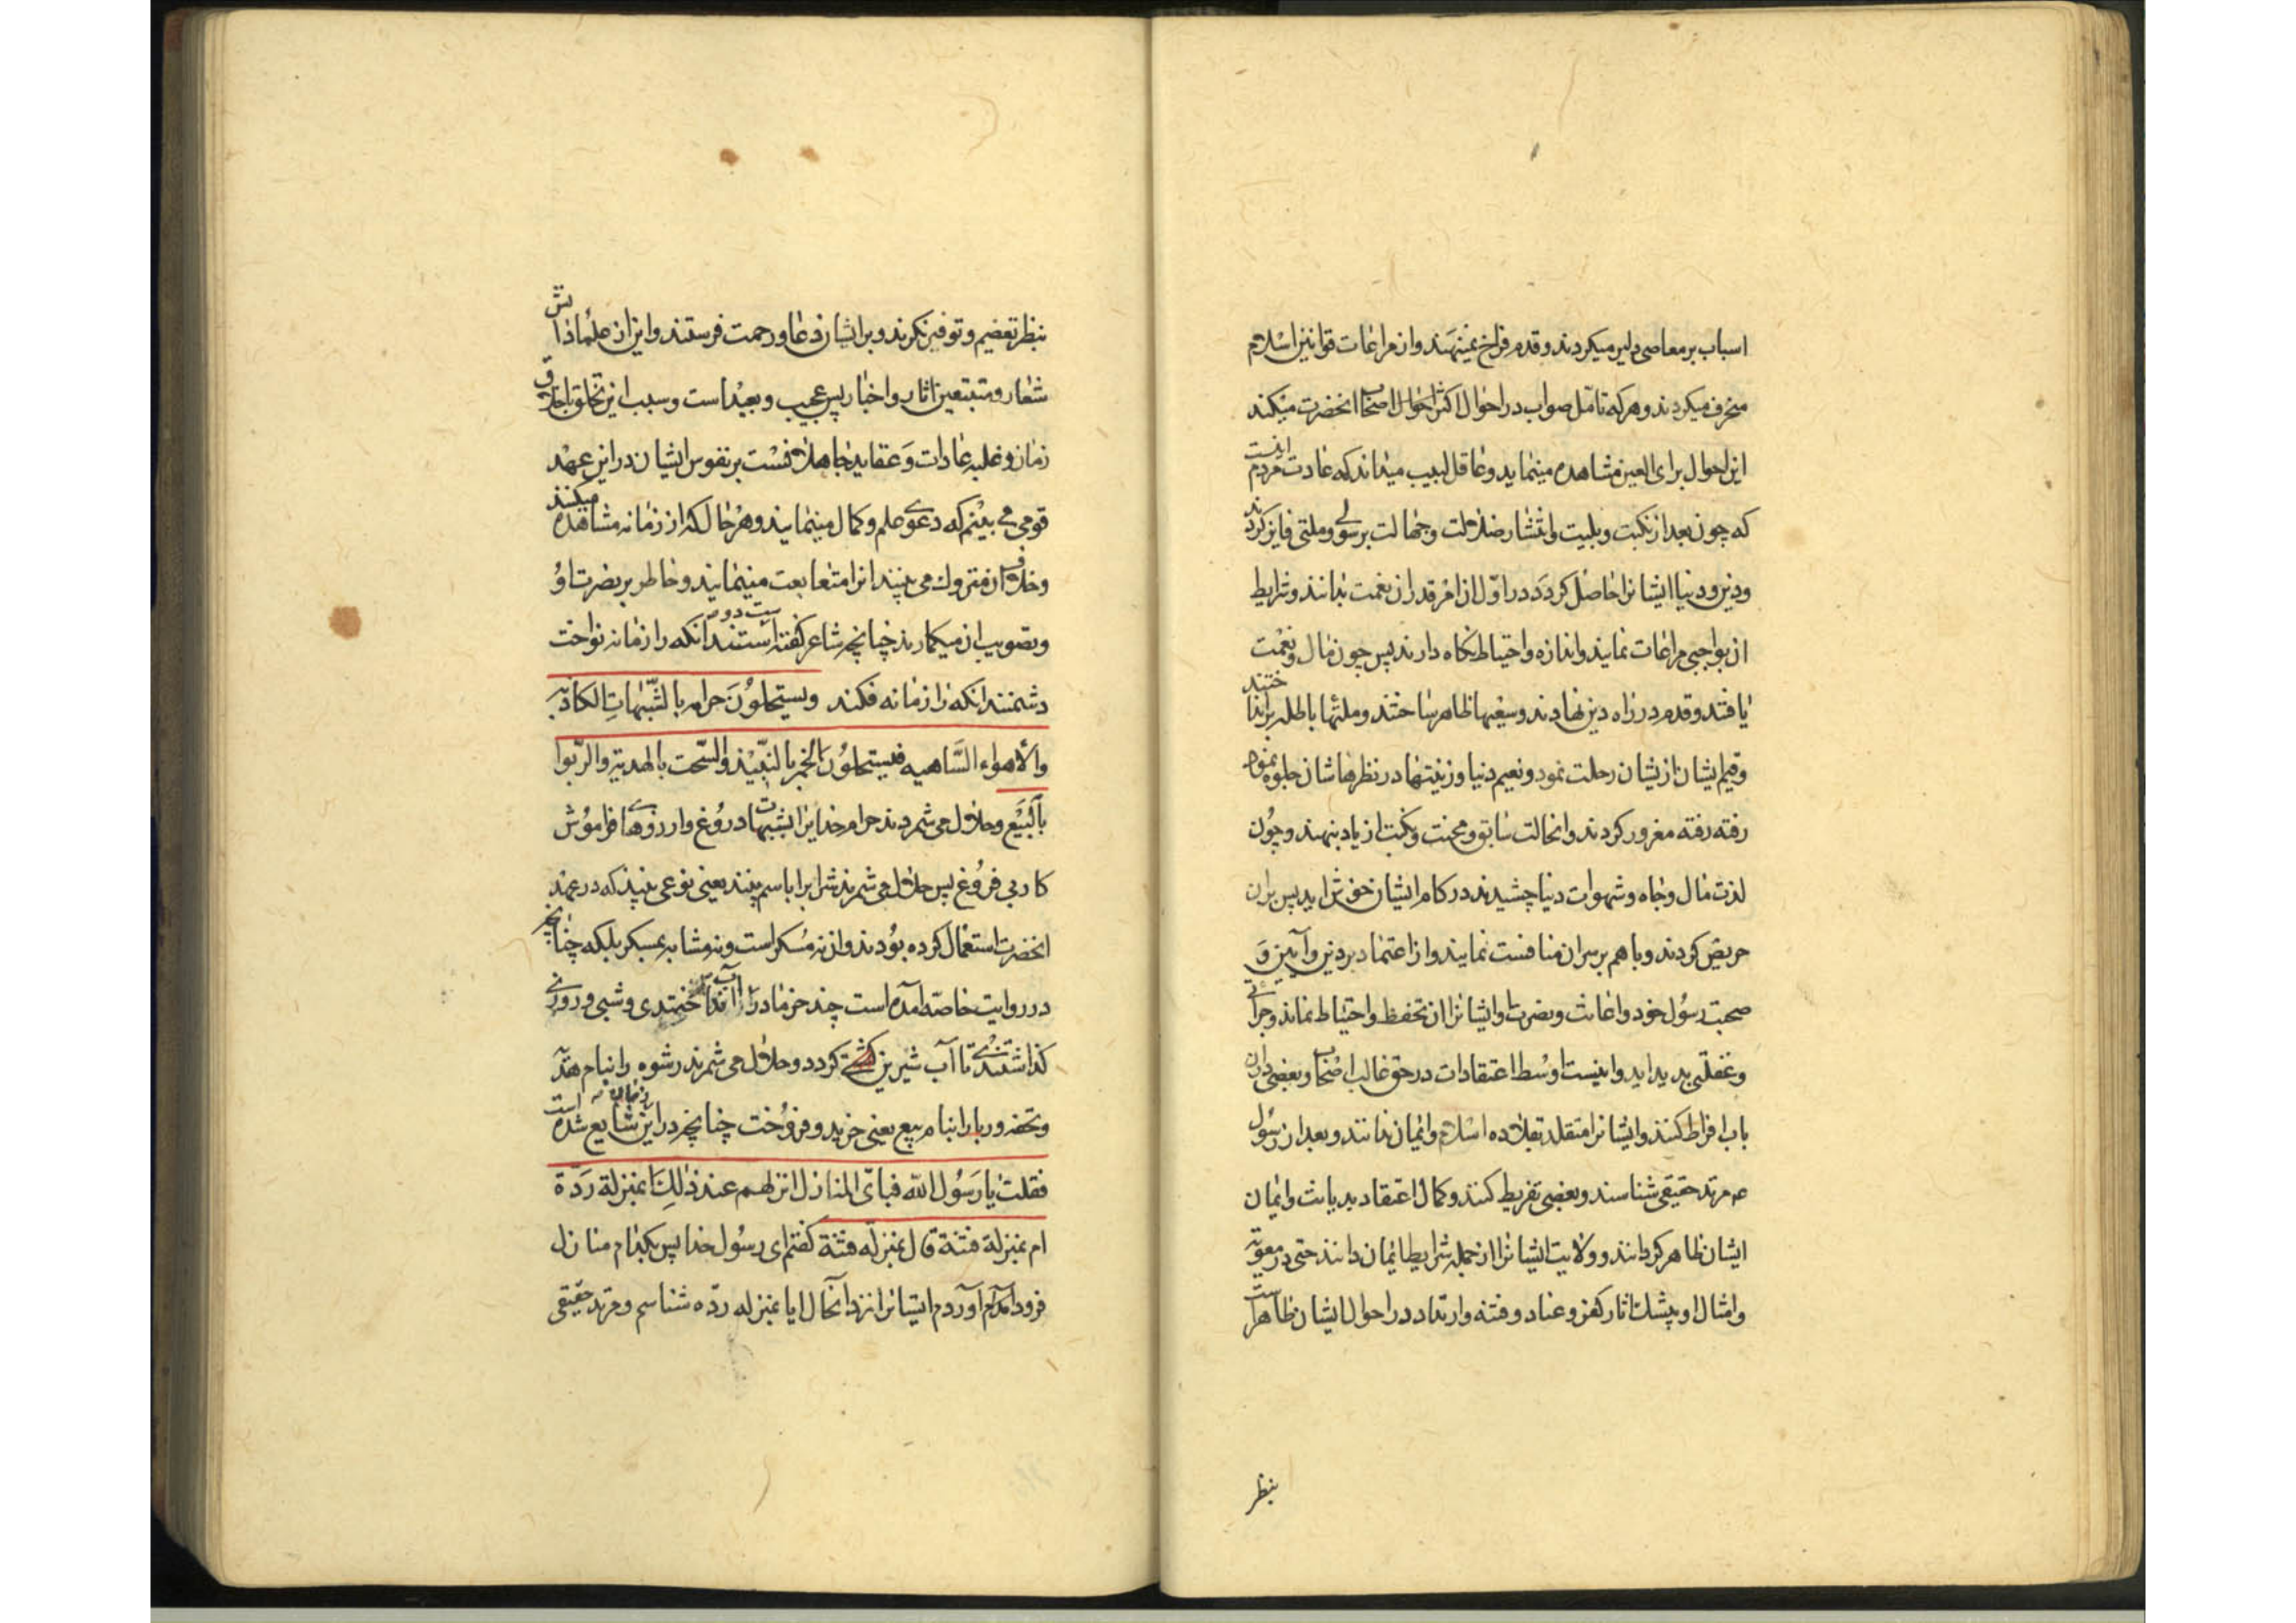 اسباب بر معاصی دلیر میکردند و قدم فراخ مینهند و از مراعات قوانین اسلام
منحرف میکردند و هر که تامل صواب در احوال اکثر احوال اصحاب انحضرت میکند
این احوال برای العین مشاهده مینماید و عاقل لبیب میداند که عادت مردم اینست
که چون بعد از نکبت و بلیت و انتشار ضلالت و جهالت برسولی و ملتی فایز کردند
و دین و دنیا ایشانرا حاصل کردد در اول ان امر قدر ان نعمت بدانند و شرایط
ان بواجبی مراعات نمایند و اندازه و احتیاط نکاه دارند پس چون مال و نعمت
یافتند و قدم در راه دین نهادند و سیفها ظاهر ساختند و ملتها باطله برانداختند
و قیم ایشان از یشان رحلت نمود و نعیم دنیا و زینتها در نظرهاشان جلوه نمود
رفته رفته مغرور کردند و انحالت سابق و محنت و نکبت از یاد بنهند و چون
لذت مال و جاه و شهوات دنیا چشیدند در کام ایشان خوش اید پس بران
حریص کردند و با هم بر سر ان منافست نمایند و از اعتماد بر دین و آیین و
صحبت رسول خود و اغاثت و نصرت او ایشانرا ان تحفظ و احتیاط نماند و جراتی
و غفلتی پدید اید و اینست اوسط اعتقادات در حق غالب اصحاب و بعضی دران
باب افراط کنند و ایشانرا متقلد بقلاده اسلام و ایمان ندانند و بعد از رسول
عم مرتد حقیقی شناسند و بعضی تفریط کنند و کمال اعتقاد بدیانت و ایمان
ایشان ظاهر کردانند و ولایت ایشانرا از جمله شرایط ایمان دانند حتی در معویه
و امثال او بیشک اثار کفر و عناد و فتنه و ارتداد در احوال ایشان ظاهر است
بنظر
بنظر تعضیم و توقیر نکرند و بر ایشان دعا و رحمت فرستند و این از علماء دانش
شعار و متتبعین اثار و اخبار پس عجیب و بعید است و سبب این تخلق باخلاق
زمان و غلبه عادات و عقاید جاهلانست بر نفوس ایشان در این عهد
قومی می بینم که دعوی علم و کمال مینمایند و هر حال که از زمانه مشاهده میکنند
و خلاف ان متروک می بینند انرا متعابعت مینمایند و خاطر بر نصرت او
و تصویب ان میکمارند چنانچه شاعر کفته است دوستند انکه را زمانه نواخت
دشمنند انکه را زمانه فکند ویستحلون حرام بالشبهات الکاذبه
والأهواء الساهیه فیستحلون الخمر بالنبیذ والسحت بالهدیة والربوا
بالبیع و حلال می شمردند حرام خدایرا بشبهات دروغ و ارزوهای فراموش
کار بی فروغ پس حلال می شمرند شرابرا باسم بنیذ یعنی نوعی بنیذ که در عهد
انحضرت استعمال کرده بودند و ان نه مسکر است و نه مشابه بمسکر بلکه چنانچه
در روایت خاصه آمده است چند خرما در آب انداختندی و شبی و روزی
کذاشتندی تا آب شیرین کشتی کردد و حلال می شمرند رشوه را بنام هدیه
و تحفه و ربا را بنام بیع یعنی خرید و فروخت چنانچه در این زمان شایع شده است
فقلت یا رسول الله فبای المنازل انزلهم عند ذلك بمنزلة ردة
ام بمنزلة فتنة قال بمنزلة فتنة کفتم ای رسول خدا پس بکدام منازل
فرود آورم ایشانرا نزد آنحال ایا بمنزله رده شناسم و مرتد حقیقی